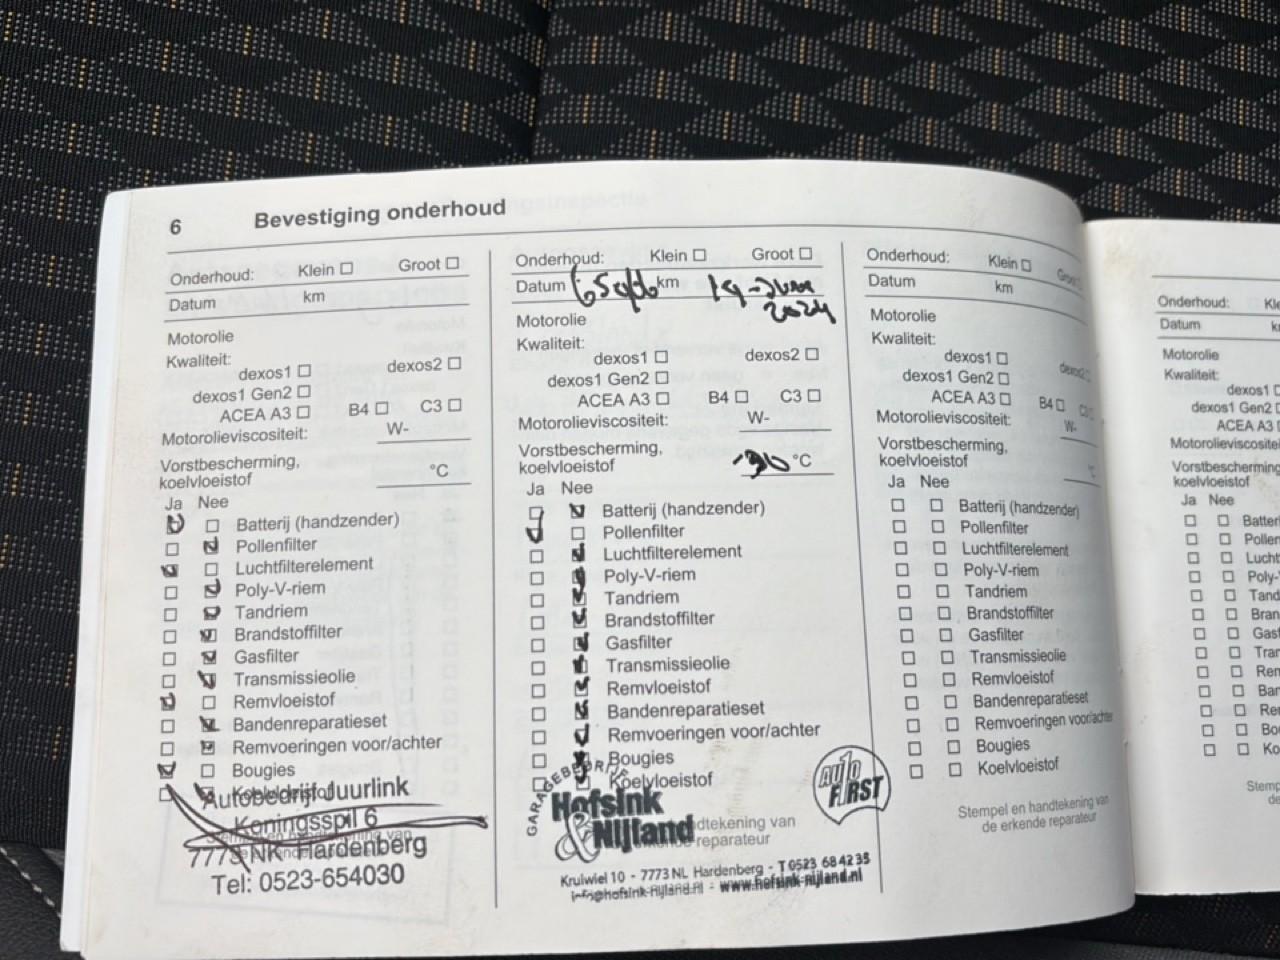 6 Bevestiging onderhoud
Onderhoud: Klein ☐ Groot ☐
Datum km
Motorolie
Kwaliteit:
dexos1 ☐ dexos2 ☐
dexos1 Gen2 ☐
ACEA A3 ☐ B4 ☐ C3 ☐
Motorolieviscositeit: W-
Vorstbescherming,
koelvloeistof °C
Ja Nee
Batterij (handzender)
Pollenfilter
Luchtfilterelement
Poly-V-riem
Tandriem
Brandstoffilter
Gasfilter
Transmissieolie
Remvloeistof
Bandenreparatieset
Remvoeringen voor/achter
Bougies
Autobedrijf Juurlink
Koningsspil 6
7773 NK Hardenberg
Tel: 0523-654030
Onderhoud: Klein ☐ Groot ☐
Datum km 19-Juni
2024
Motorolie
Kwaliteit:
dexos1 ☐ dexos2 ☐
dexos1 Gen2 ☐
ACEA A3 ☐ B4 ☐ C3 ☐
Motorolieviscositeit: W-
Vorstbescherming,
koelvloeistof -30 °C
Ja Nee
Batterij (handzender)
Pollenfilter
Luchtfilterelement
Poly-V-riem
Tandriem
Brandstoffilter
Gasfilter
Transmissieolie
Remvloeistof
Bandenreparatieset
Remvoeringen voor/achter
Bougies
Koelvloeistof
GARAGEBEDRIJF
Hofsink
& Nijland
dtekening van
reparateur
AUTO FIRST
Kruiwiel 10 - 7773 NL Hardenberg - T 0523 684235
info@hofsink-nijland.nl - www.hofsink-nijland.nl
Onderhoud: Klein ☐ Groot ☐
Datum km
Motorolie
Kwaliteit:
dexos1 ☐ dexos2 ☐
dexos1 Gen2 ☐
ACEA A3 ☐ B4 ☐ C3
Motorolieviscositeit: W-
Vorstbescherming,
koelvloeistof °C
Ja Nee
Batterij (handzender)
Pollenfilter
Luchtfilterelement
Poly-V-riem
Tandriem
Brandstoffilter
Gasfilter
Transmissieolie
Remvloeistof
Bandenreparatieset
Remvoeringen voor/achter
Bougies
Koelvloeistof
Stempel en handtekening van
de erkende reparateur
Onderhoud: Kle
Datum k
Motorolie
Kwaliteit:
dexos1
dexos1 Gen2
ACEA A3
Motorolieviscositei
Vorstbescherming
koelvloeistof
Ja Nee
Batter
Pollen
Lucht
Poly-
Tand
Bran
Gasf
Tran
Rem
Ban
Re
Bo
Ko
Stemp
de